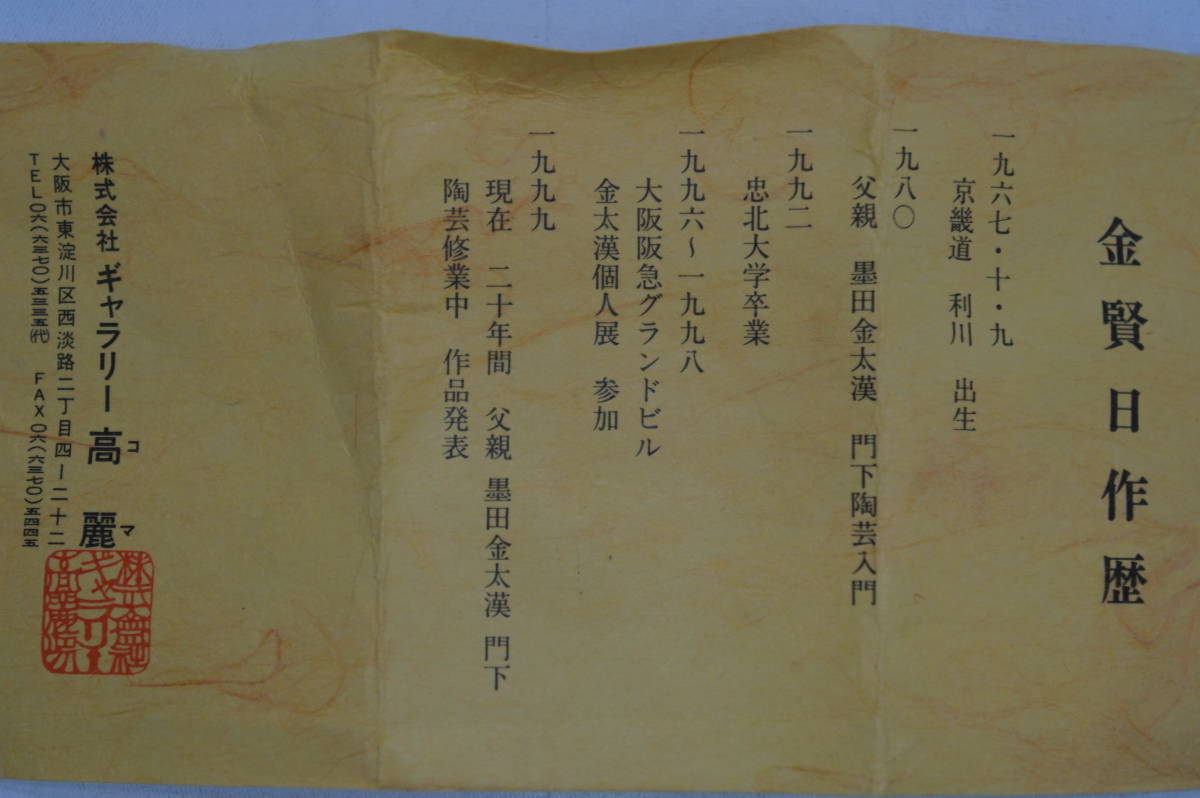 金賢日作歴
一九六七・十・九
京畿道 利川 出生
一九八〇
父親 墨田金太漢 門下陶芸入門
一九九二
忠北大学卒業
一九九六~一九九八
大阪阪急グランドビル
金太漢個人展 参加
一九九九
現在 二十年間 父親 墨田金太漢 門下
陶芸修業中 作品発表
株式会社 ギャラリー 高麗
コマ
大阪市東淀川区西淡路二丁目四ー二十二
TEL〇六(六三七〇)五三三五(代) FAX〇六(六三七〇)五四四五
株式会社
ギャラリー
高麗